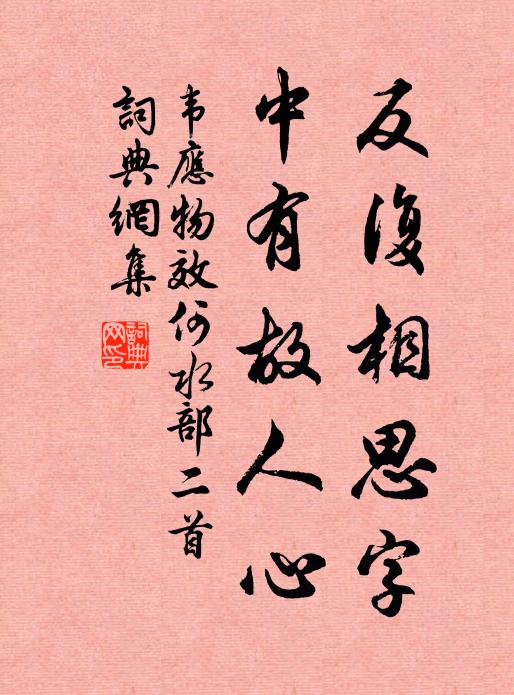 反復相思字
中有故人心
韦應物效何水部二首
詞典網集
詞典网印